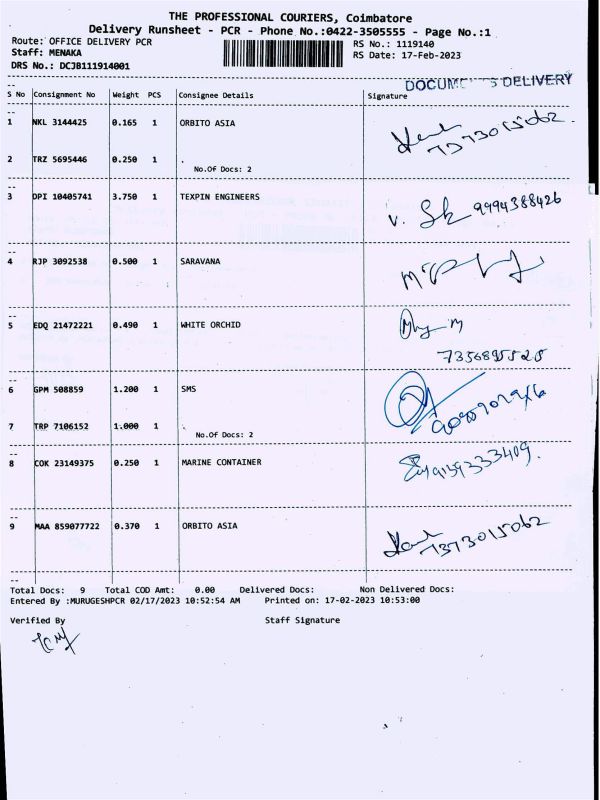 THE PROFESSIONAL COURIERS, Coimbatore
Delivery Runsheet - PCR - Phone No.:0422-3505555 - Page No.:1
Route: OFFICE DELIVERY PCR RS No.: 1119140
Staff: MENAKA RS Date: 17-Feb-2023
DRS No.: DCJB111914001
DELIVERY
S No Consignment No Weight PCS Consignee Details Signature
1 NKL 3144425 0.165 1 ORBITO ASIA
7373015062
2 TRZ 5695446 0.250 1 .
No.Of Docs: 2
3 DPI 10405741 3.750 1 TEXPIN ENGINEERS
9994388426
4 RJP 3092538 0.500 1 SARAVANA
5 EDQ 21472221 0.490 1 WHITE ORCHID
6 GPM 508859 1.200 1 SMS
7 TRP 7106152 1.000 1 .
No.Of Docs: 2
8 COK 23149375 0.250 1 MARINE CONTAINER
9 MAA 859077722 0.370 1 ORBITO ASIA
7373015062
Total Docs: 9 Total COD Amt: 0.00 Delivered Docs: Non Delivered Docs:
Entered By :MURUGESHPCR 02/17/2023 10:52:54 AM Printed on: 17-02-2023 10:53:00
Verified By Staff Signature